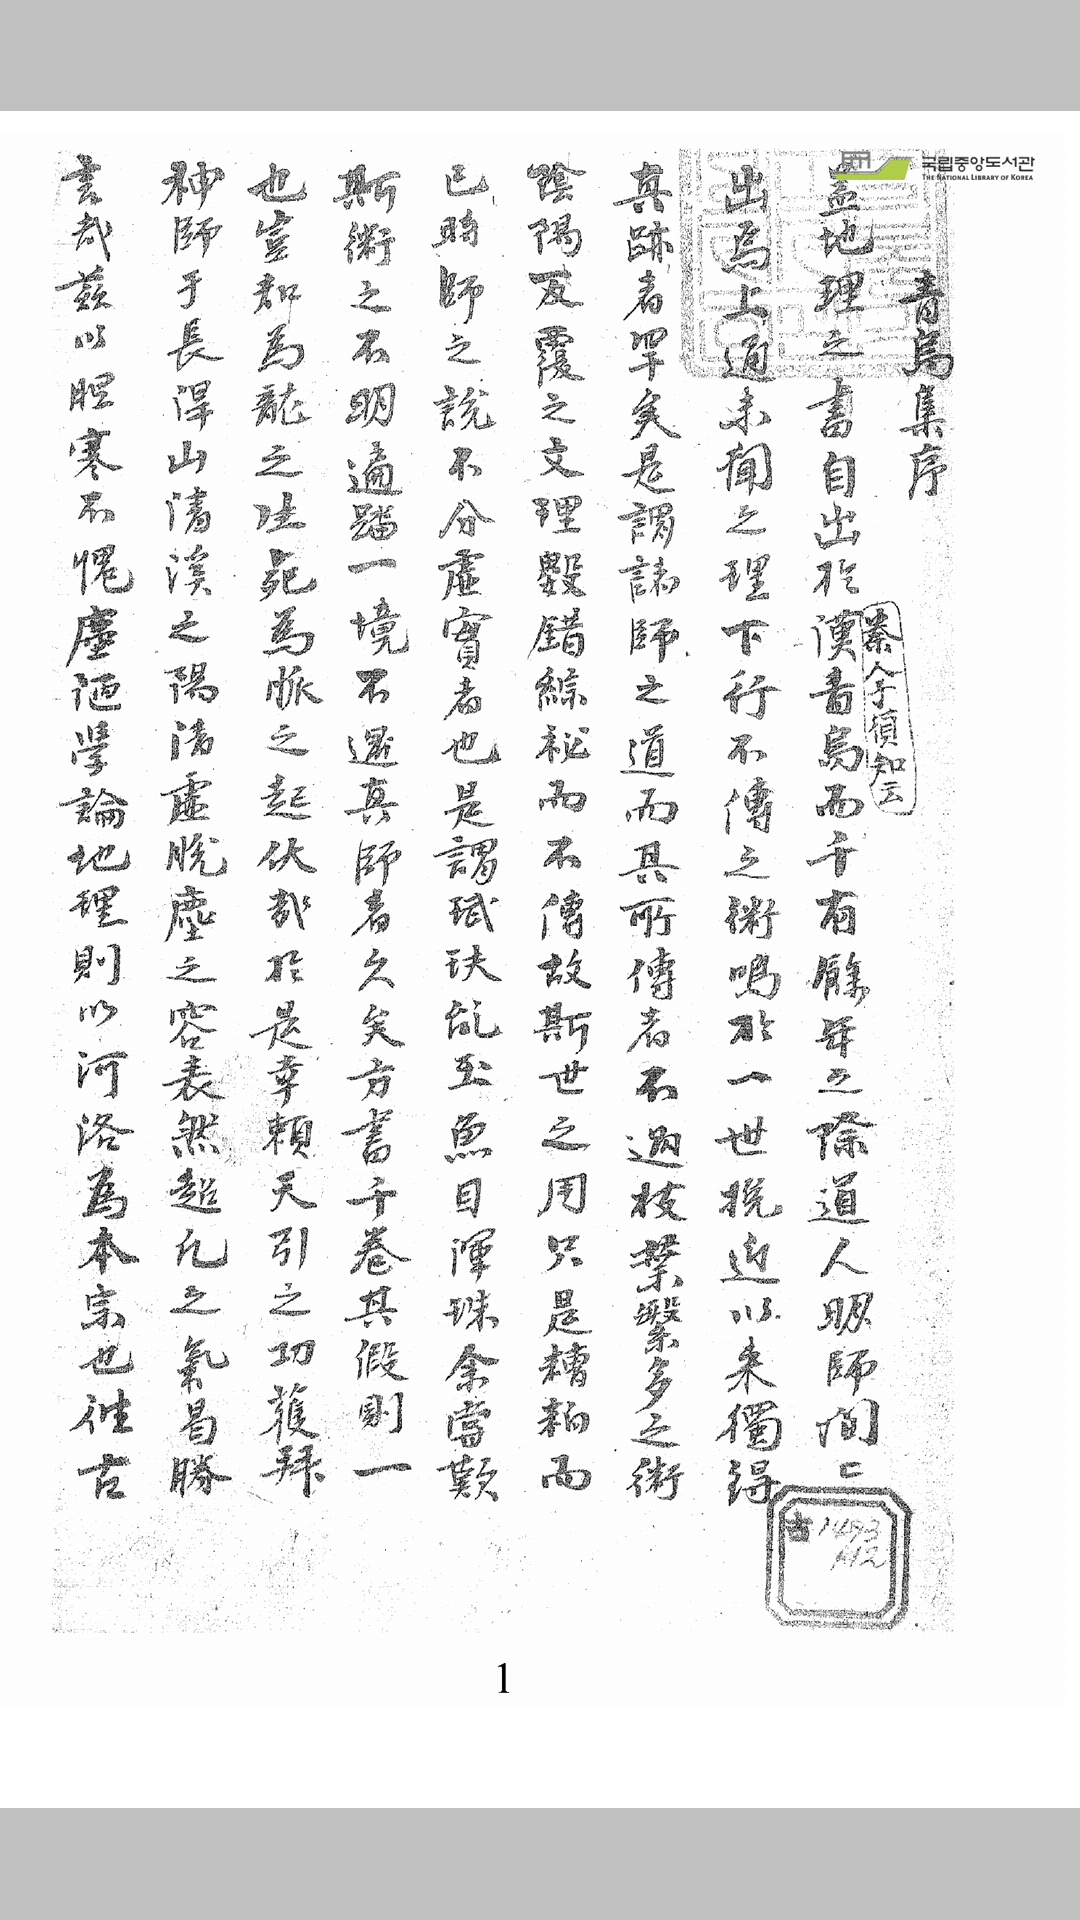 국립중앙도서관
THE NATIONAL LIBRARY OF KOREA
青烏集序
秦人子須知云
盖地理之書自出於漢青烏而千有餘年之際道人明師間〻
出焉上通未聞之理下行不傳之術鳴於一世挽近以来獨得
真跡者罕矣是謂諸師之道而其所傳者不過枝葉繁多之術
陰陽反覆之文理數錯綜秘而不傳故斯世之用只是糟粕而
已時師之說不分虛實者也是謂珷玞乱玉魚目渾珠余嘗歎
斯術之不明遍踏一境不遇真師者久矣方書千卷其假則一
也豈知為龍之生死為脈之起伏哉於是幸賴天引之功獲拜
神師于長淂山清溪之陽清虛脫塵之容表然超凡之氣曷勝
言哉茲以胆寒不愧塵陋學論地理則以河洛為本宗也徃古
古1493
1